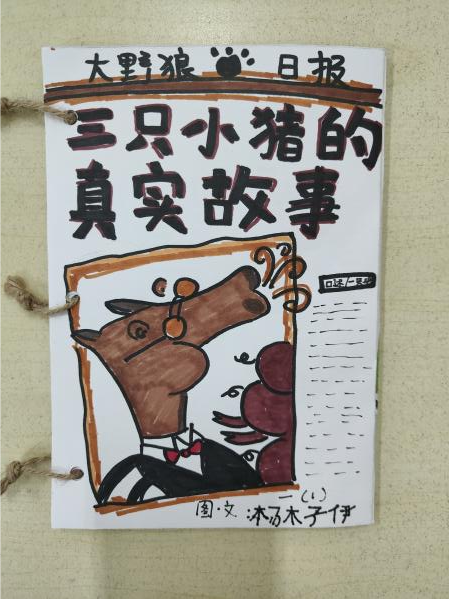 大野狼 日报
三只小猪的
真实故事
口述/一
一(1)
图·文 杨子伊